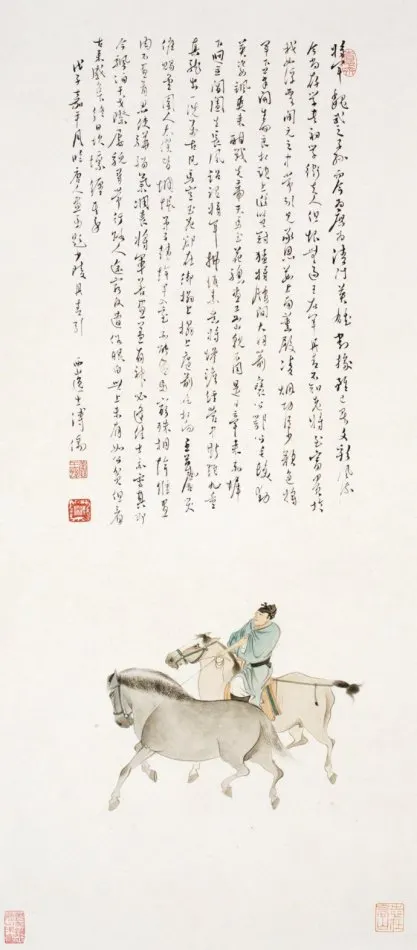 將軍魏武之子孫於今為庶為清門英雄割據雖已矣文彩風流
今尚存學書初學衛夫人但恨無過王右軍丹青不知老將至富貴於
我如浮雲開元之中常引見承恩數上南薰殿凌煙功臣少顏色將
軍下筆開生面良相頭上進賢冠猛將腰間大羽箭褒公鄂公毛髮動
英姿颯爽來酣戰先帝天馬玉花驄畫工如山貌不同是日牽來赤墀
下迥立閶闔生長風詔謂將軍拂絹素意匠慘澹經營中斯須九重
真龍出一洗萬古凡馬空玉花卻在御榻上榻上庭前屹相向至尊含笑
催賜金圉人太僕皆惆悵弟子韓幹早入室亦能畫馬窮殊相幹惟畫
肉不畫骨忍使驊騮氣凋喪將軍畫善蓋有神必逢佳士亦寫真即
今飄泊干戈際屢貌尋常行路人途窮反遭俗眼白世上未有如公貧但看
古來盛名下終日坎壈纏其身
戊子嘉平月臨唐人畫馬題少陵丹青引
西山逸士溥儒